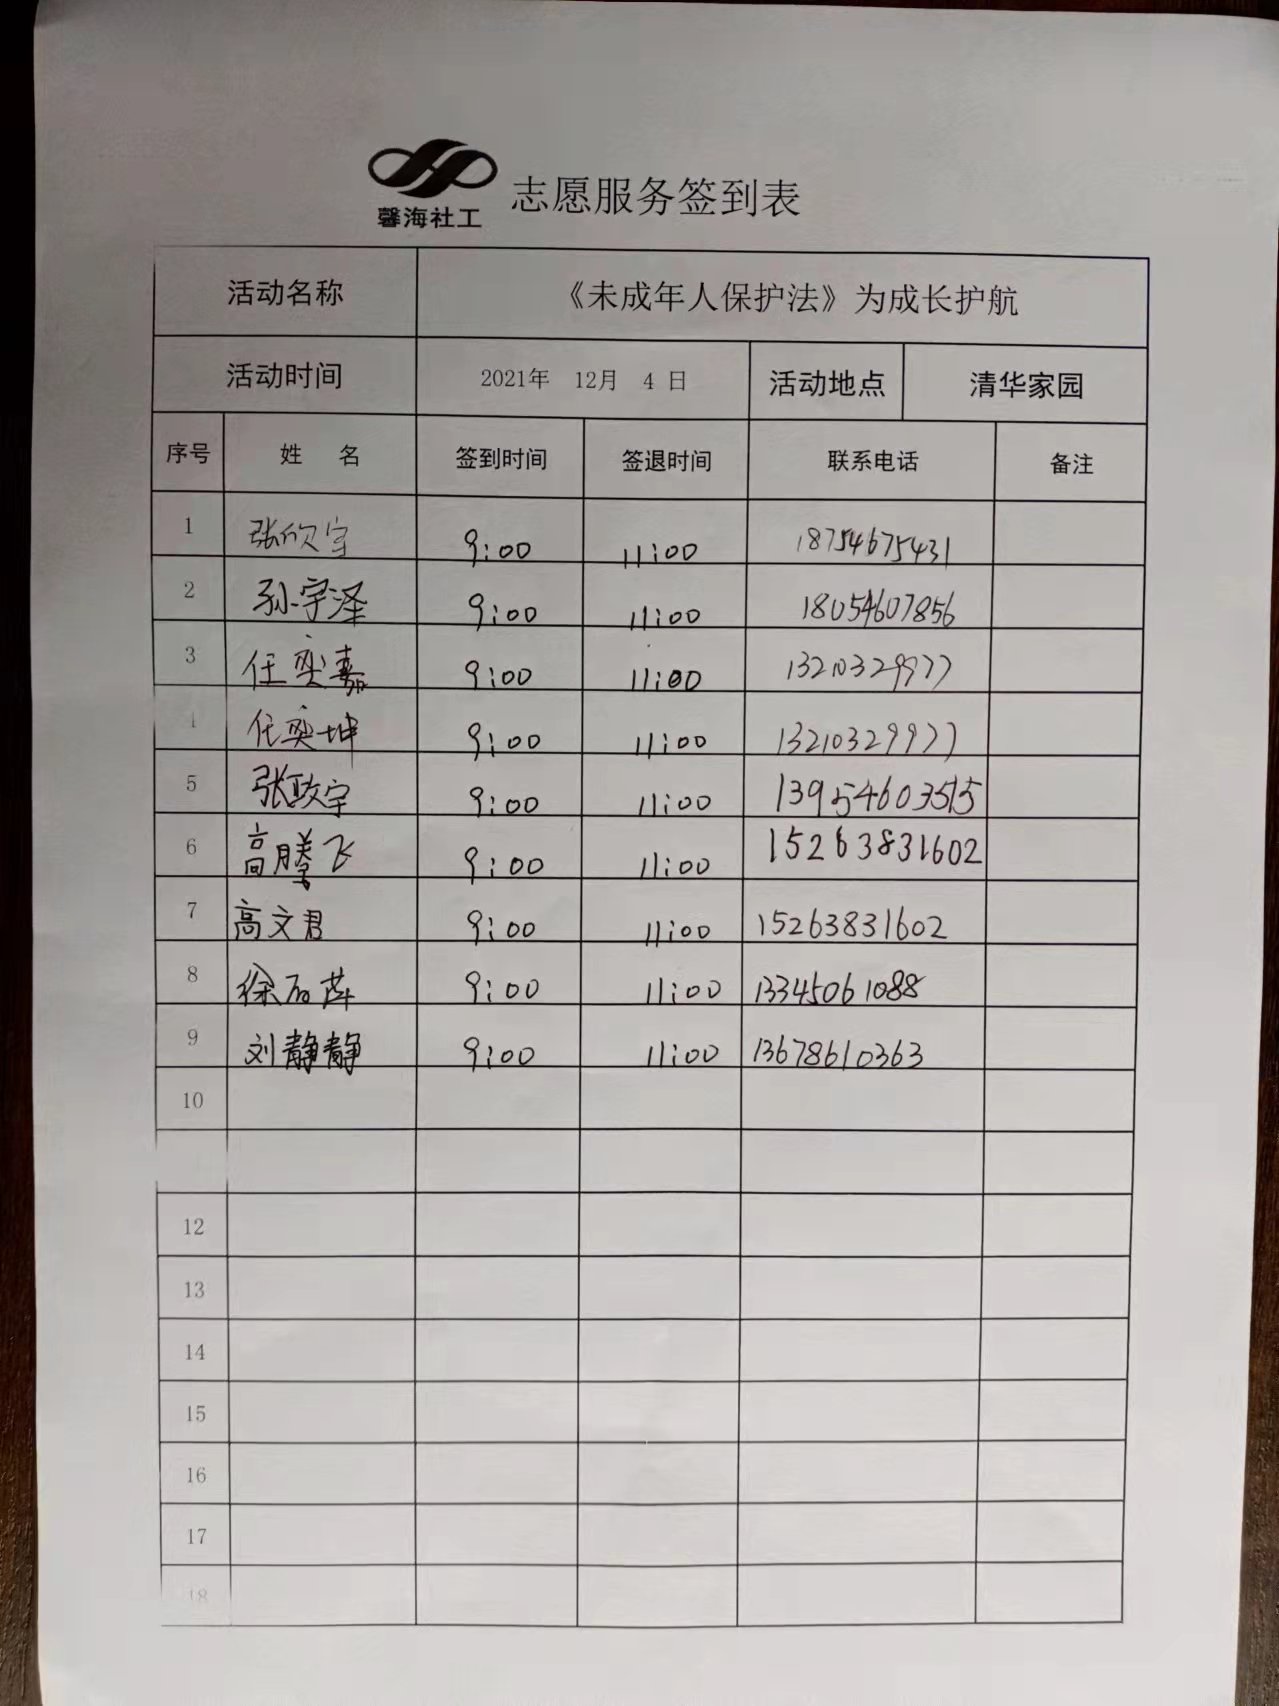 馨海社工 志愿服务签到表
活动名称 《未成年人保护法》为成长护航
活动时间 2021年 12月 4日 活动地点 清华家园
序号 姓 名 签到时间 签退时间 联系电话 备注
1 张欣宇 9:00 11:00 18754675431
2 孙宇泽 9:00 11:00 18054607856
3 任奕嘉 9:00 11:00 13210329977
4 任奕坤 9:00 11:00 13210329977
5 张政宇 9:00 11:00 13954603515
6 高腾飞 9:00 11:00 15263831602
7 高文君 9:00 11:00 15263831602
8 徐 萍 9:00 11:00 13345061088
9 刘静静 9:00 11:00 13678610363
10
12
13
14
15
16
17
18